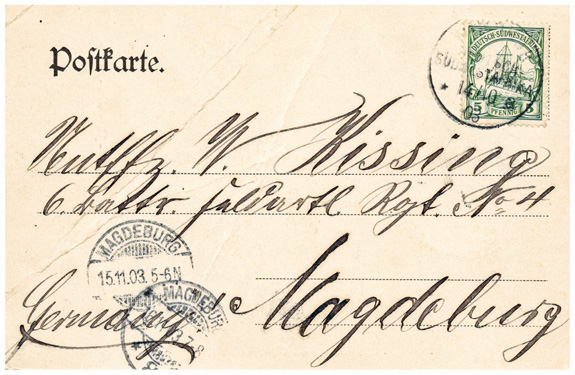 Postkarte.
DEUTSCH-SÜDWESTAFRIKA
14/10
03
5 PFENNIG 5
W. Kissing
6. Battr. Feldartl. Rgt. No 4
MAGDEBURG
15.11.03. 5-6N
MAGDEBURG
7-8
Germany
Magdeburg